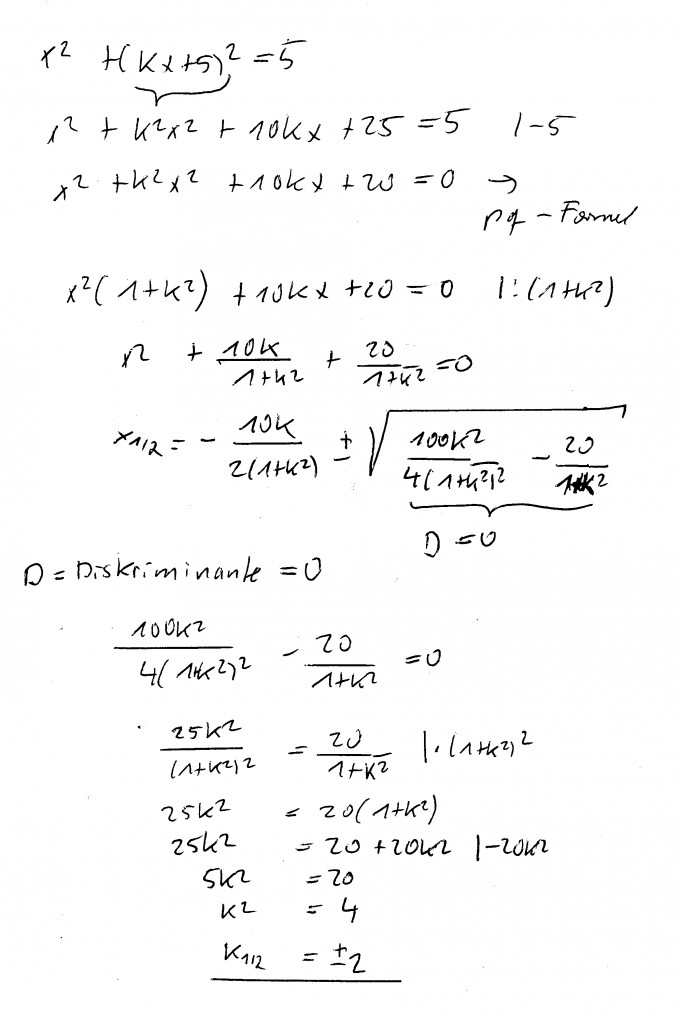 x² + (kx+5)² = 5
x² + k²x² + 10kx + 25 = 5 | -5
x² + k²x² + 10kx + 20 = 0 →
pq - Formel
x²(1+k²) + 10kx + 20 = 0 | : (1+k²)
x² + 10k/(1+k²) + 20/(1+k²) = 0
x1/2 = - 10k/(2(1+k²)) ± √(100k²/(4(1+k²)²) - 20/(1+k²))
D = 0
D = Diskriminante = 0
100k²/(4(1+k²)²) - 20/(1+k²) = 0
25k²/(1+k²)² = 20/(1+k²) | · (1+k²)²
25k² = 20(1+k²)
25k² = 20 + 20k² | -20k²
5k² = 20
k² = 4
k1/2 = ±2